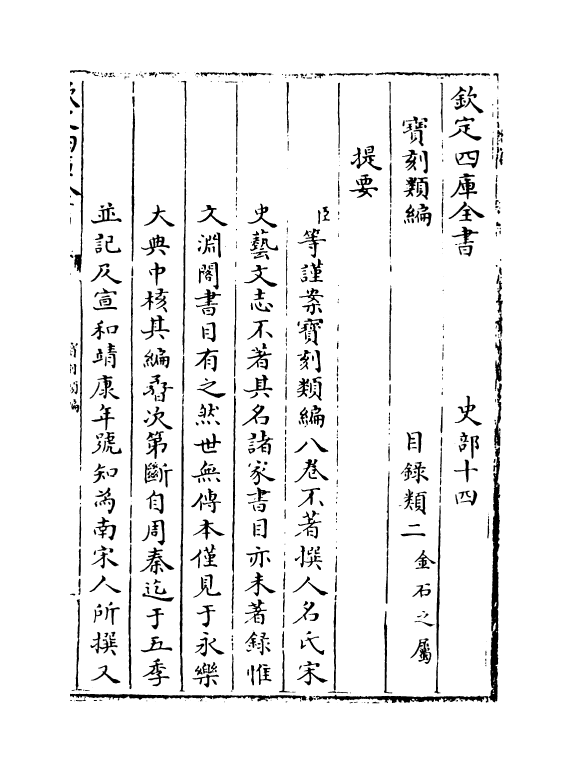 欽定四庫全書 史部十四
寶刻類編 目錄類二金石之屬
提要
臣等謹案寶刻類編八卷不著撰人名氏宋
史藝文志不著其名諸家書目亦未著錄惟
文淵閣書目有之然世無傳本僅見于永樂
大典中核其編𠢐次第斷自周秦迄于五季
並記及宣和靖康年號知為南宋人所撰又